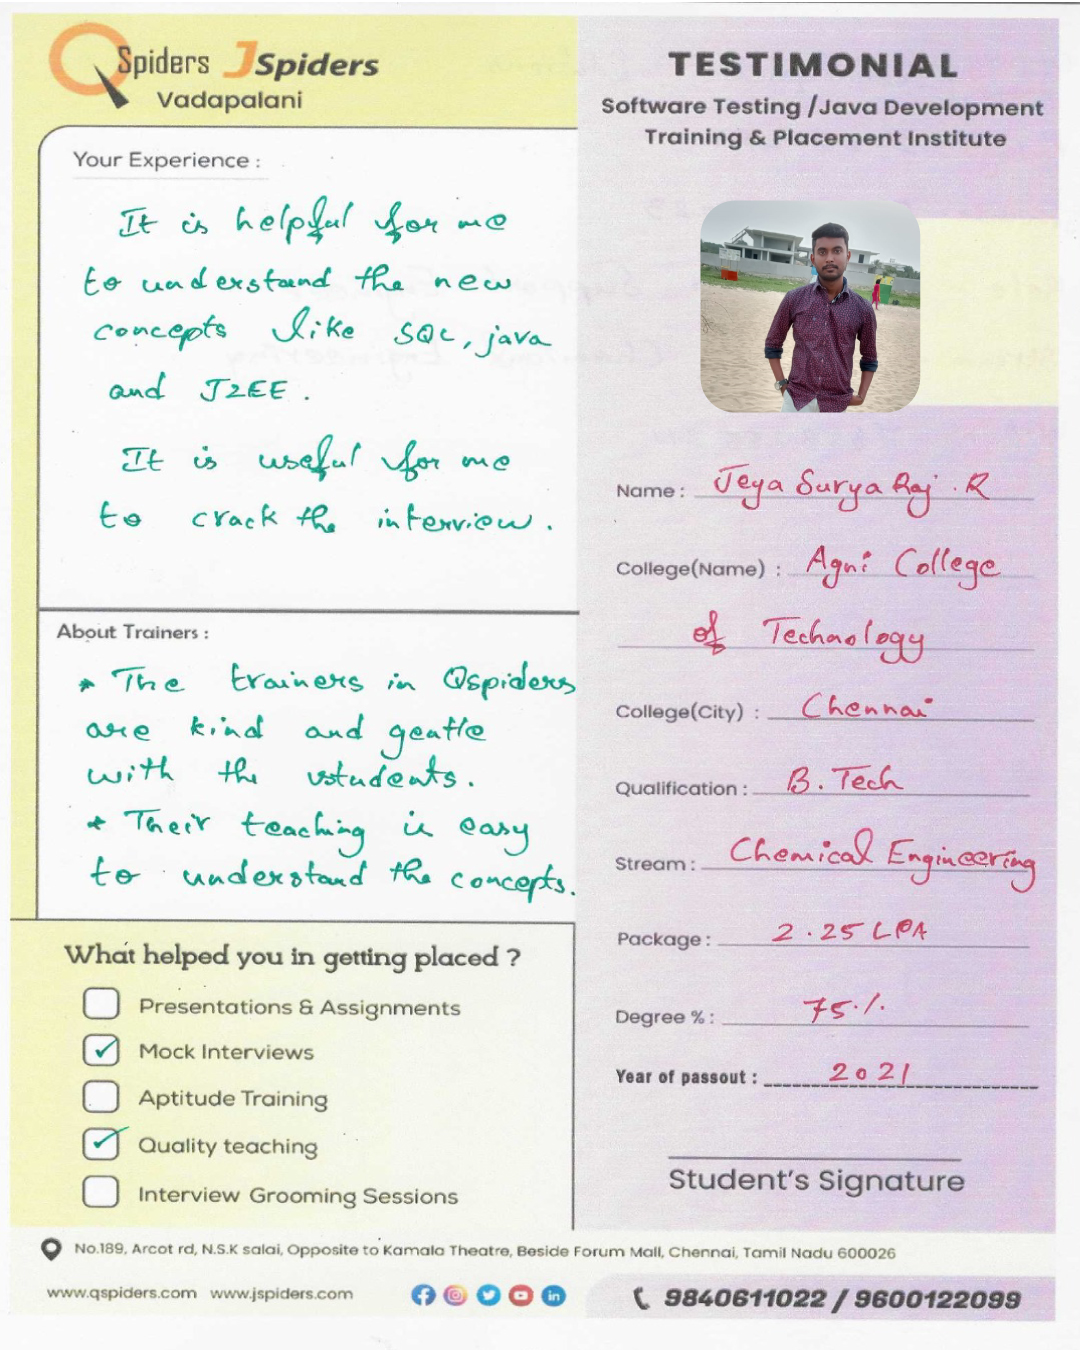 QSpiders JSpiders
Vadapalani
Your Experience :
It is helpful for me
to understand the new
concepts like SQL, java
and J2EE.
It is useful for me
to crack the interview.
About Trainers :
* The trainers in Qspiders
are kind and gentle
with the students.
* Their teaching is easy
to understand the concepts.
What helped you in getting placed ?
Presentations & Assignments
✓ Mock Interviews
Aptitude Training
✓ Quality teaching
Interview Grooming Sessions
TESTIMONIAL
Software Testing /Java Development
Training & Placement Institute
Name : Jeya Surya Raj . R
College(Name) : Agni College
of Technology
College(City) : Chennai
Qualification : B. Tech
Stream : Chemical Engineering
Package : 2.25 LPA
Degree % : 75%
Year of passout : 2021
Student's Signature
No.189, Arcot rd, N.S.K salai, Opposite to Kamala Theatre, Beside Forum Mall, Chennai, Tamil Nadu 600026
www.qspiders.com www.jspiders.com
9840611022 / 9600122099